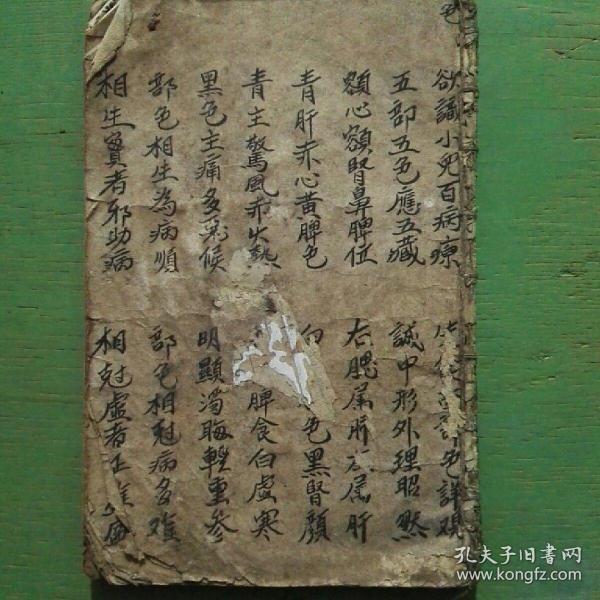 色
欲識小兒百病 部色詳观
五部五色應五藏 誠中形外理昭然
額心額腎鼻脾位 右腮屬肺 屬肝
青肝赤心黃脾色 白 色黑腎顏
青主驚風赤火熱 脾食白虛寒
黑色主痛多 候 明顯濁晦輕重参
部色相生為病順 部色相尅病多难
相生實者邪助病 相尅虛者正难
孔夫子旧书网
www.kongfz.com